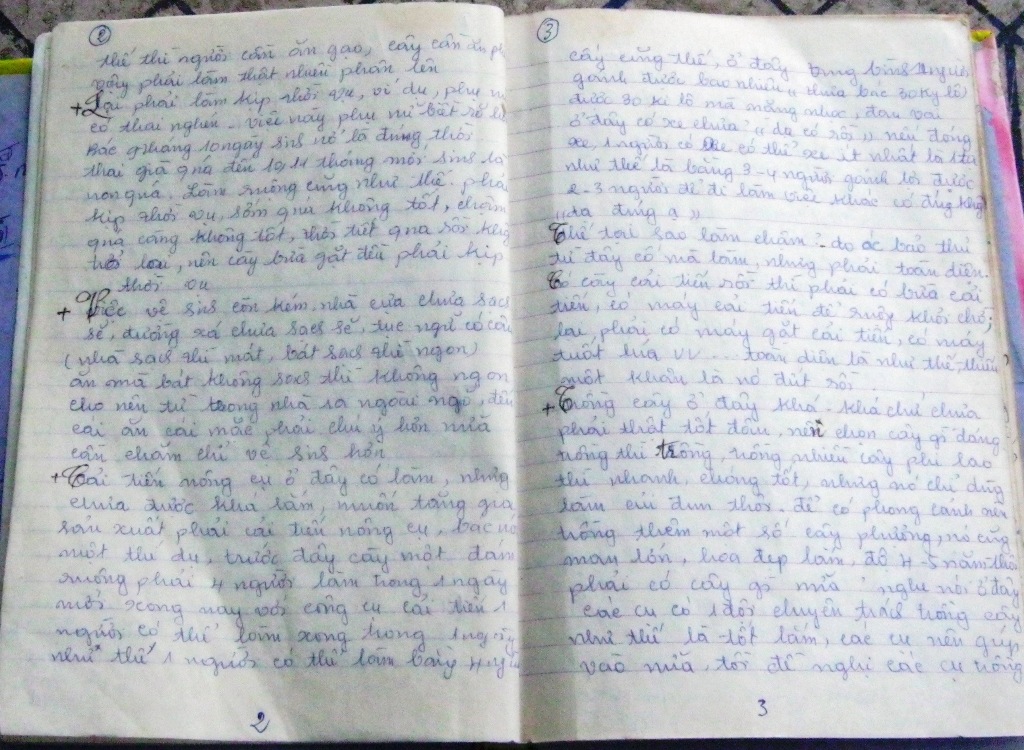 2
thế thì người cần ăn gạo, cây cần ăn ph
vậy phải làm thật nhiều phân lên
+ Lại phải làm kịp thời vụ, ví dụ, phụ n
có thai nghén - việc này phụ nữ biết rõ
Bác 9 tháng 10 ngày sinh nó là đúng, thời
thai già quá đến 10, 11 tháng mới sinh là
non quá. Làm ruộng cũng như thế phải
kịp thời vụ, sớm quá không tốt, chậm
quá cũng không tốt, thời tiết qua rồi khg
trở lại, nên cày bừa gặt đều phải kịp
thời vụ
+ Việc vệ sinh còn kém, nhà cửa chưa sạch
sẽ, đường xá chưa sạch sẽ, tục ngữ có câu
(nhà sạch thì mát, bát sạch thì ngon)
ăn mà bát không sạch thì không ngon
cho nên từ trong nhà ra ngoài ngõ, đến
cái ăn cái mặc phải chú ý hơn nữa
cần chăm chỉ vệ sinh hơn
+ Cải tiến nông cụ ở đây có làm, nhưng
chưa được khá lắm, muốn tăng gia
sản xuất phải cải tiến nông cụ, bác nó
một thí dụ, trước đây cấy một đám
ruộng phải 4 người làm trong 1 ngày
mới xong nay với công cụ cải tiến 1
người có thể làm xong trong 1 ngày
như thế 1 người có thể làm bằng 4 ng
2
3
cấy cũng thế, ở đây trung bình 1 người
gánh được bao nhiêu " thưa bác 30 ky lô
được 30 ki lô mà nặng nhọc, đau vai
ở đây có xe chưa? " dạ có rồi " nếu đóng
xe, 1 người có xe có thể xe ít nhất là 1 tạ
như thế là bằng 3-4 người gánh lợi được
2-3 người để đi làm việc khác có đúng khg
" dạ đúng ạ "
Thế tại sao làm chậm? - do óc bảo thủ
từ đây cố mà làm, nhưng phải toàn diện.
Có cày cải tiến rồi thì phải có bừa cải
tiến, có máy cải tiến để khỏi chờ;
lại phải có máy gặt cải tiến, có máy
tuốt lúa vv... toàn diện là như thế, thiếu
một khâu là nó đứt rồi
+ Trồng cây ở đây khá. Khá chứ chưa
phải thật tốt đâu, nên chọn cây gì đáng
trồng thì trồng, trồng nhiều cây phi lao
thì nhanh, chóng tốt, nhưng nó chỉ dùng
làm củi đun thôi. để có phong cảnh nên
trồng thêm một số cây phượng, nó cũng
mau lớn, hoa đẹp lắm, độ 4-5 năm thôi
phải có cây gì nữa? nghe nói ở đây
các cụ có 1 đội chuyên trách trồng cây
như thế là tốt lắm, các cụ nên giúp
vào nữa, tôi đề nghị các cụ trồng
3